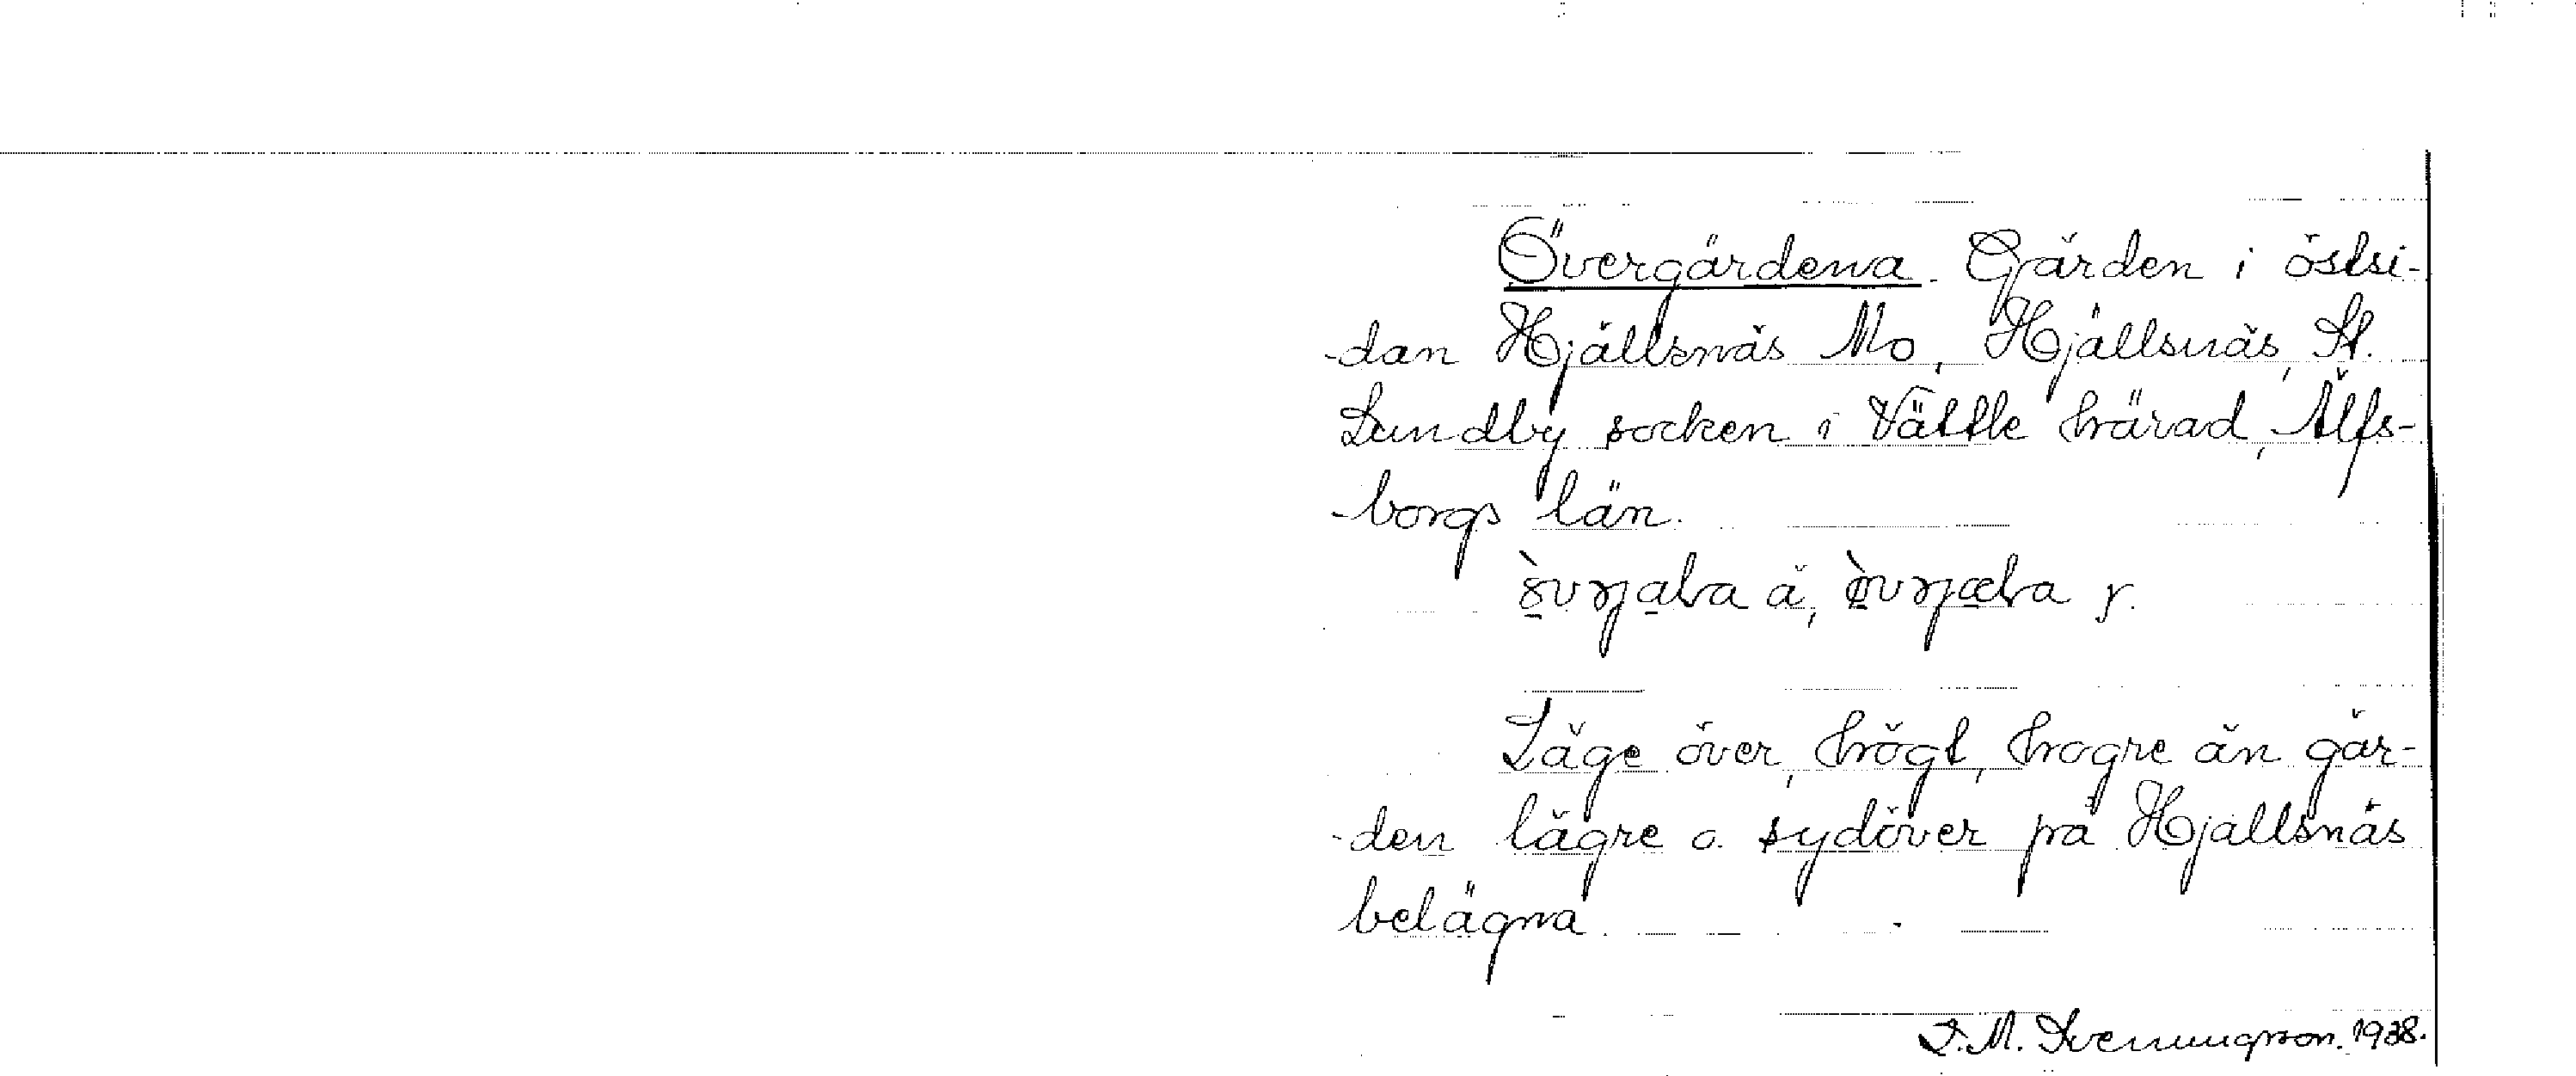 Övergärdena. Gården i östsi-
-dan Hjällsnäs Mo, Hjällsnäs, St.
Lundby socken i Vättle härad, Älfs-
-borgs län.
Läge över, högt, högre än går-
-den lägre o. sydöver på Hjällsnäs
belägna.
1938.